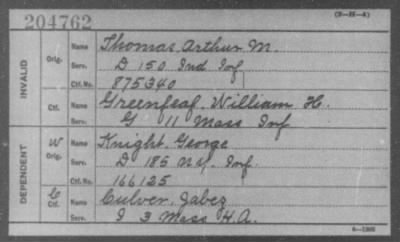 204762
(3-H-A)
INVALID
Orig. Name Thomas, Arthur M.
Serv. D 150 Ind Inf
Ctf. No. 875340
Ctf. Name Greenfeaf, William H.
Serv. G 11 Mass Inf
DEPENDENT
W Orig. Name Knight, George
Serv. D 185 N.Y. Inf.
Ctf. No. 166125
C Ctf. Name Culver, Jabez
Serv. I 3 Mass H.A.